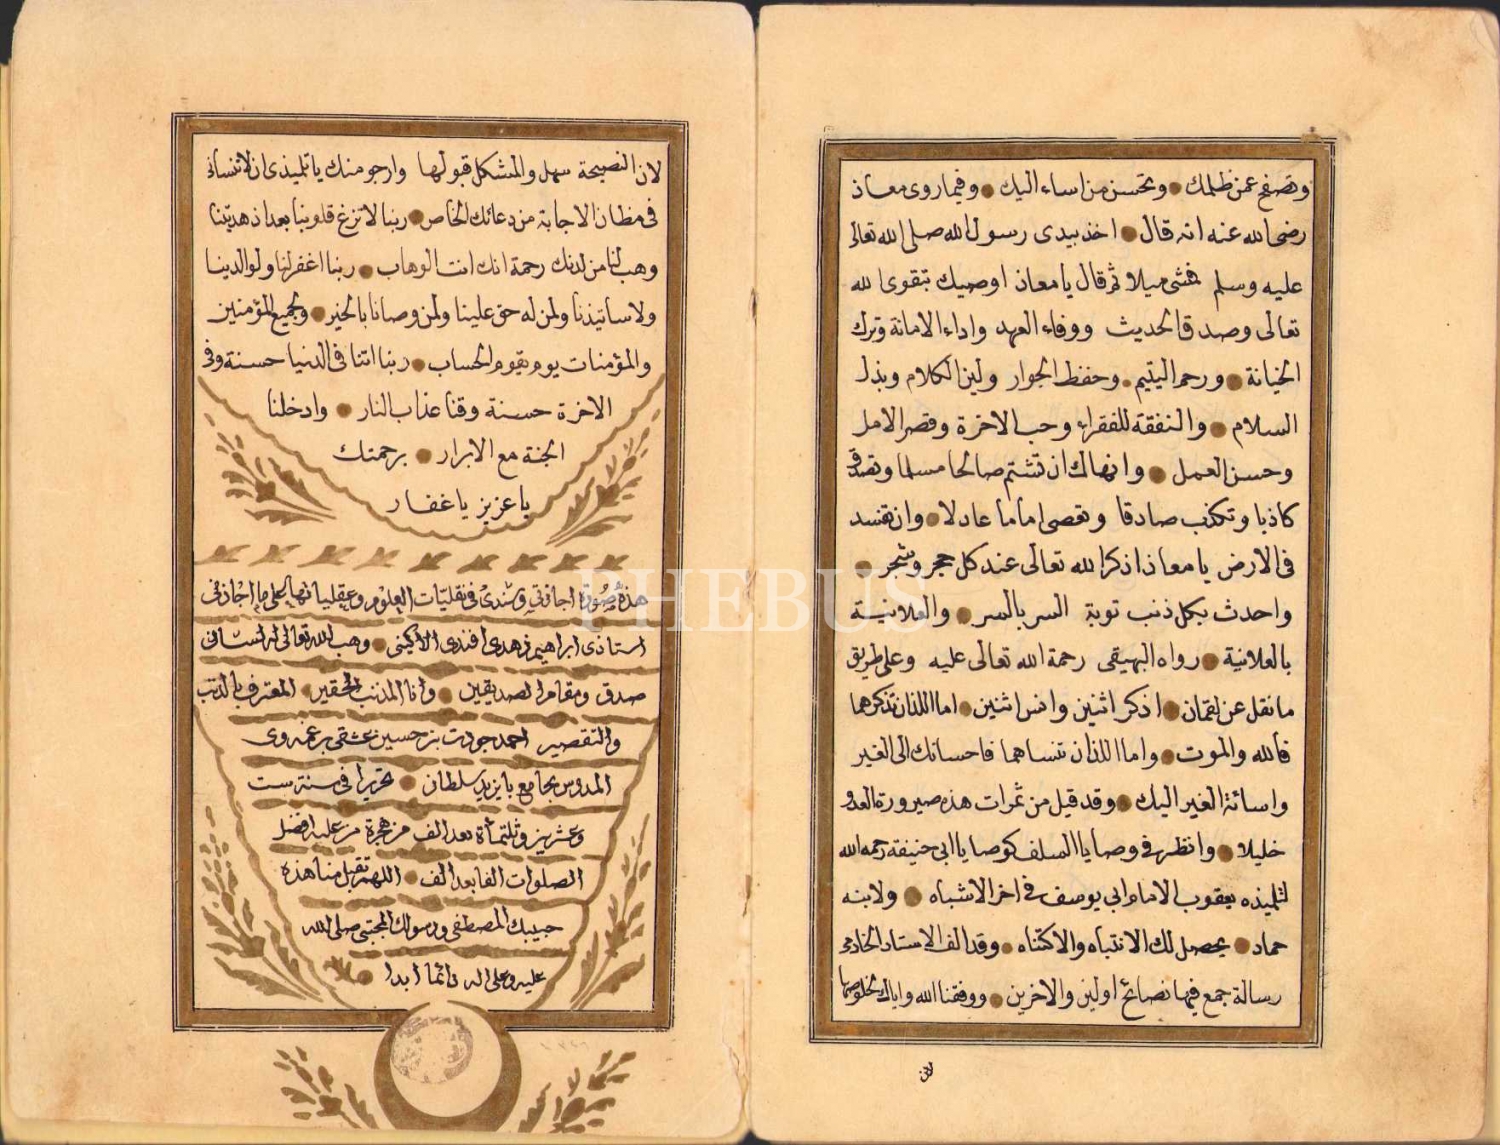 وتصفح عمن ظلمك وتحسن من اساء اليك وفيما روى معاذ
رضي الله عنه انه قال اخذ بيدى رسول الله صلى الله تعالى
عليه وسلم فمشى ميلا ثم قال يا معاذ اوصيك بتقوى الله
تعالى وصدق الحديث ووفاء العهد واداء الامانة وترك
الخيانة ورحم اليتيم وحفظ الجوار ولين الكلام وبذل
السلام والنفقة للفقراء وحب الاخرة وقصر الامل
وحسن العمل وانهاك ان تشتم صالحا مسلما وتصدق
كاذبا وتكذب صادقا وتعصى اماما عادلا وان تفسد
فى الارض يا معاذ اذكر الله تعالى عند كل حجر وشجر
واحدث بكل ذنب توبة السر بالسر والعلانية
بالعلانية رواه البهيقى رحمة الله تعالى عليه وعلى طريق
ما نقل عن لقمان اذكر اثنين وانس اثنين اما اللذان تذكرهما
فالله والموت واما اللذان تنساهما فاحسانك الى الغير
واسائة الغير اليك وقد قيل من ثمرات هذه صيرورة العدو
خليلا وانظر فى وصايا السلف كوصايا ابى حنيفة رحمه الله
لتلميذه يعقوب الامام ابى يوسف فى اخر الاشباه ولابنه
حماد يحصل لك الانتباه والاكتناه وقد الف الاستاد الخادمى
رسالة جمع فيها نصائح اولين والاخرين ووفقنا الله واياك لخلوصها
لان
لان النصيحة سهل والمشكل قبولها وارجو منك يا تلميذى ان لا تنسانى
فى مظان الاجابة من دعائك الخاص ربنا لا تزغ قلوبنا بعد اذ هديتنا
وهب لنا من لدنك رحمة انك انت الوهاب ربنا اغفر لنا ولوالدينا
ولاساتيذنا ولمن له حق علينا ولمن وصانا بالخير ولجميع المؤمنين
والمؤمنات يوم يقوم الحساب ربنا اتنا فى الدنيا حسنة وفى
الاخرة حسنة وقنا عذاب النار وادخلنا
الجنة مع الابرار برحمتك
يا عزيز يا غفار
هذه صورة اجازتي وسندى فى نقليات العلوم وعقلياتها على ما اجازنى
استاذى ابراهيم فهدى افندى الاكينى وهب الله تعالى له لسان
صدق ومقام الصديقين وانا المذنب الحقير المعترف بالذنب
والتقصير احمد جودت بن حسين عشقى بن
المدرس بجامع بايزيد سلطان تحريرا فى سنة ست
وعشرين وثلثمأة بعد الف من هجرة من عليه افضل
الصلوات الفا بعد الف اللهم تقبل منا هذه
حبيبك المصطفى ورسولك المجتبى صلى الله
عليه وعلى اله دائما ابدا
PHEBUS